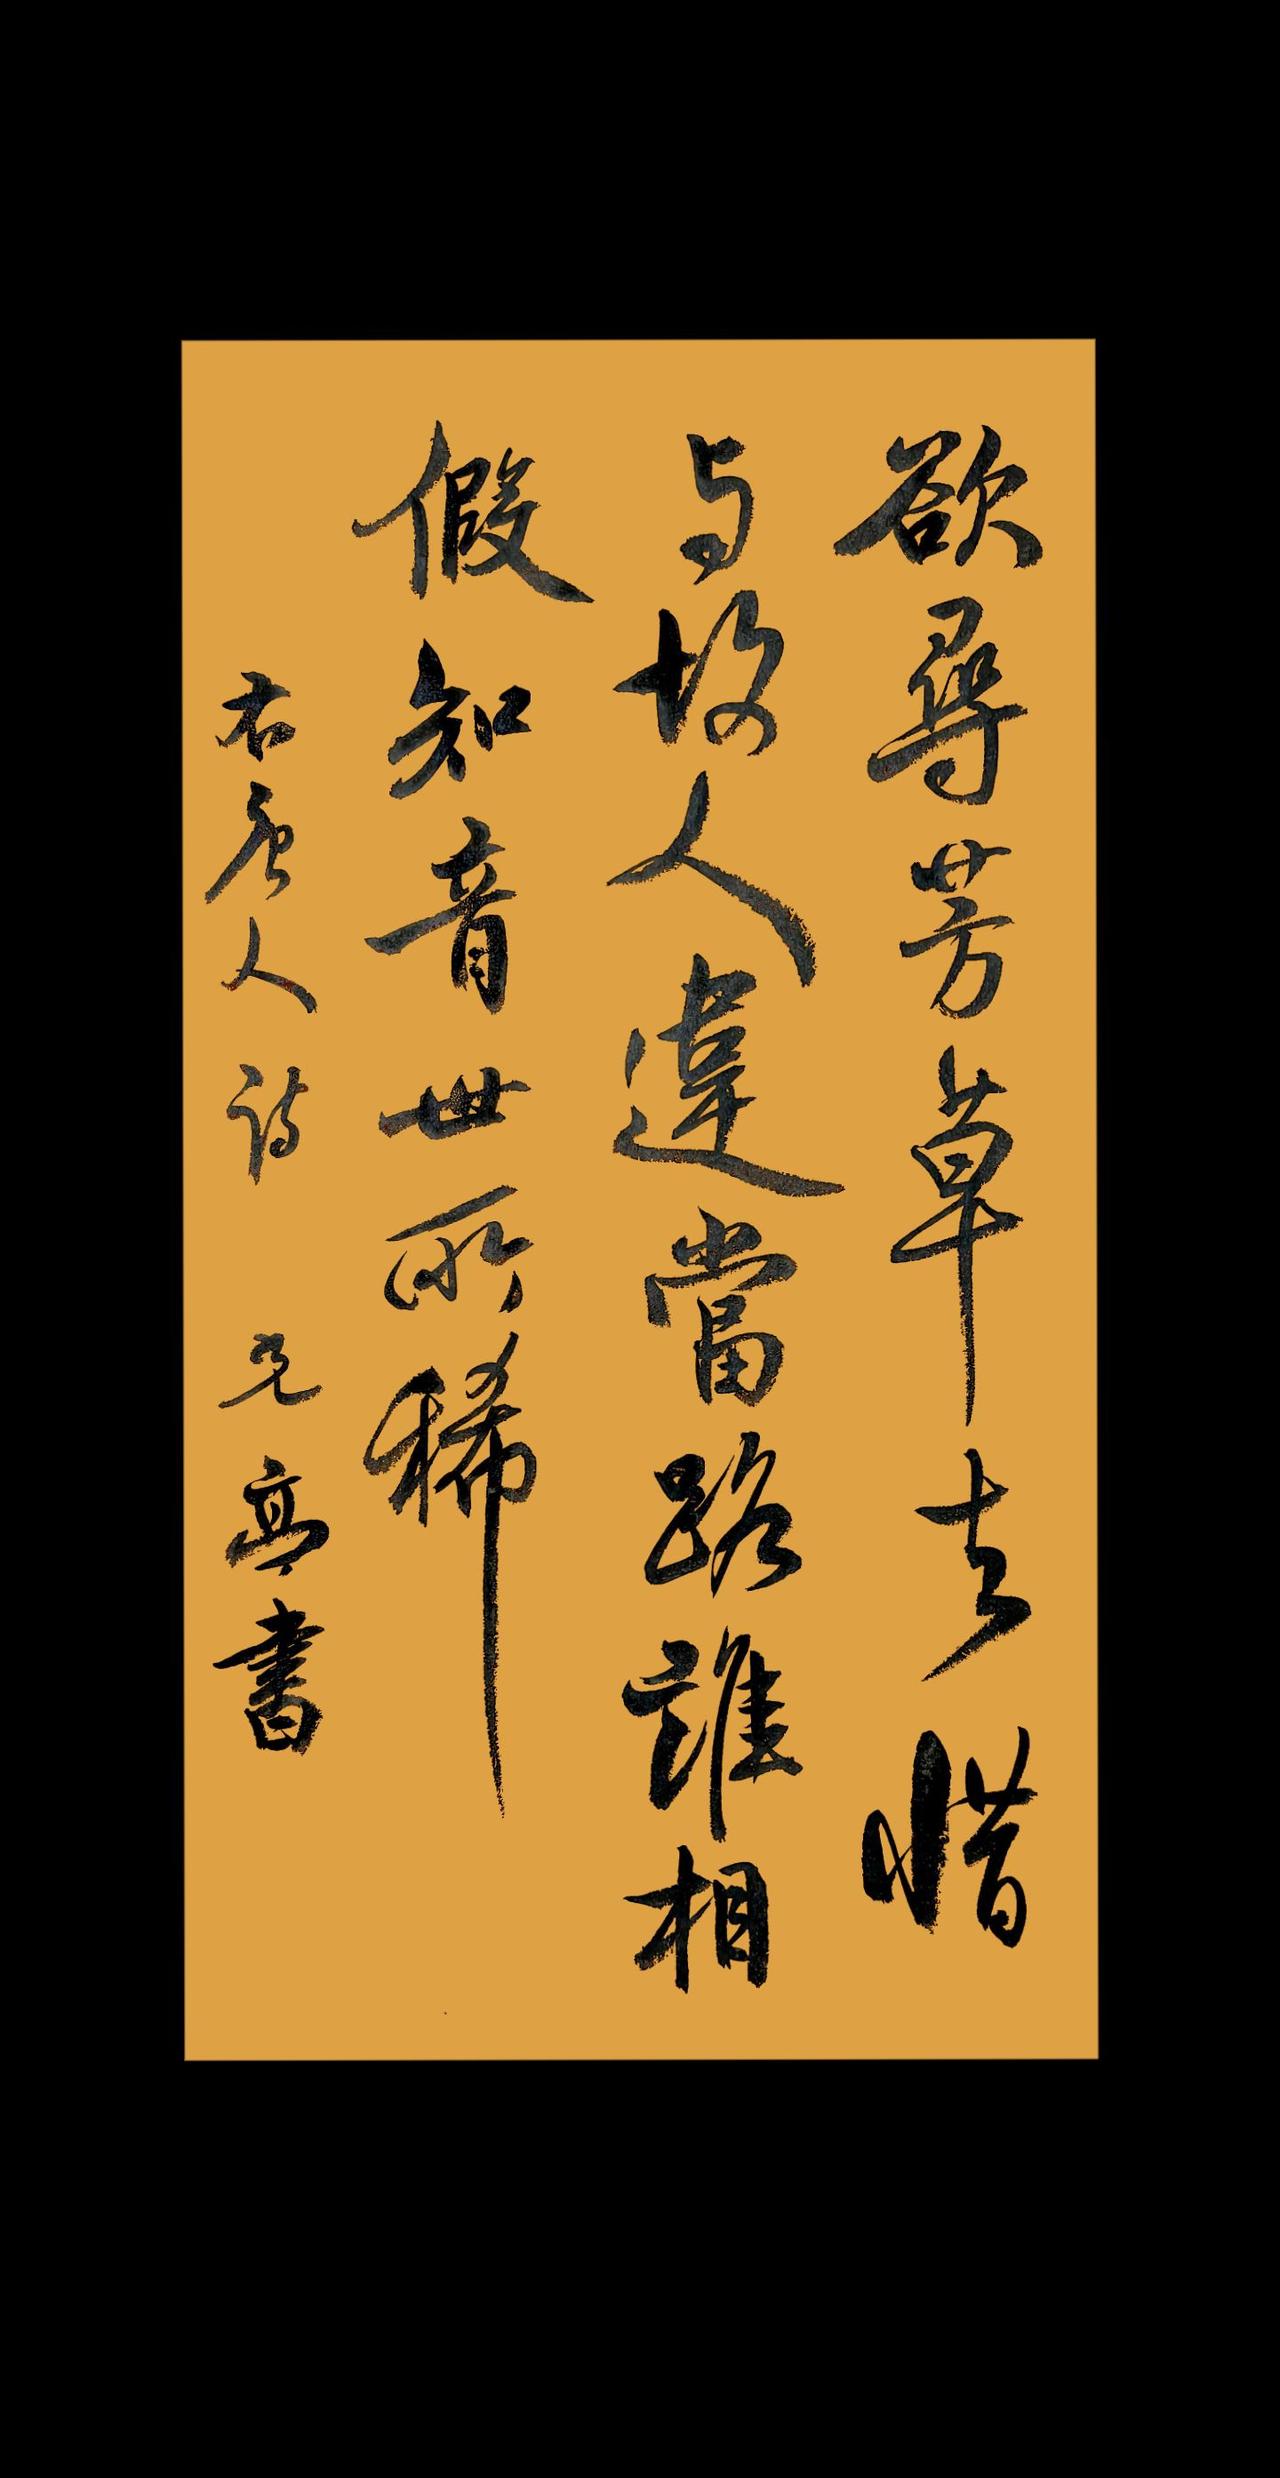 欲尋芳草去惜
与故人違當路誰相
假知音世所稀
右唐人詩 元亭書